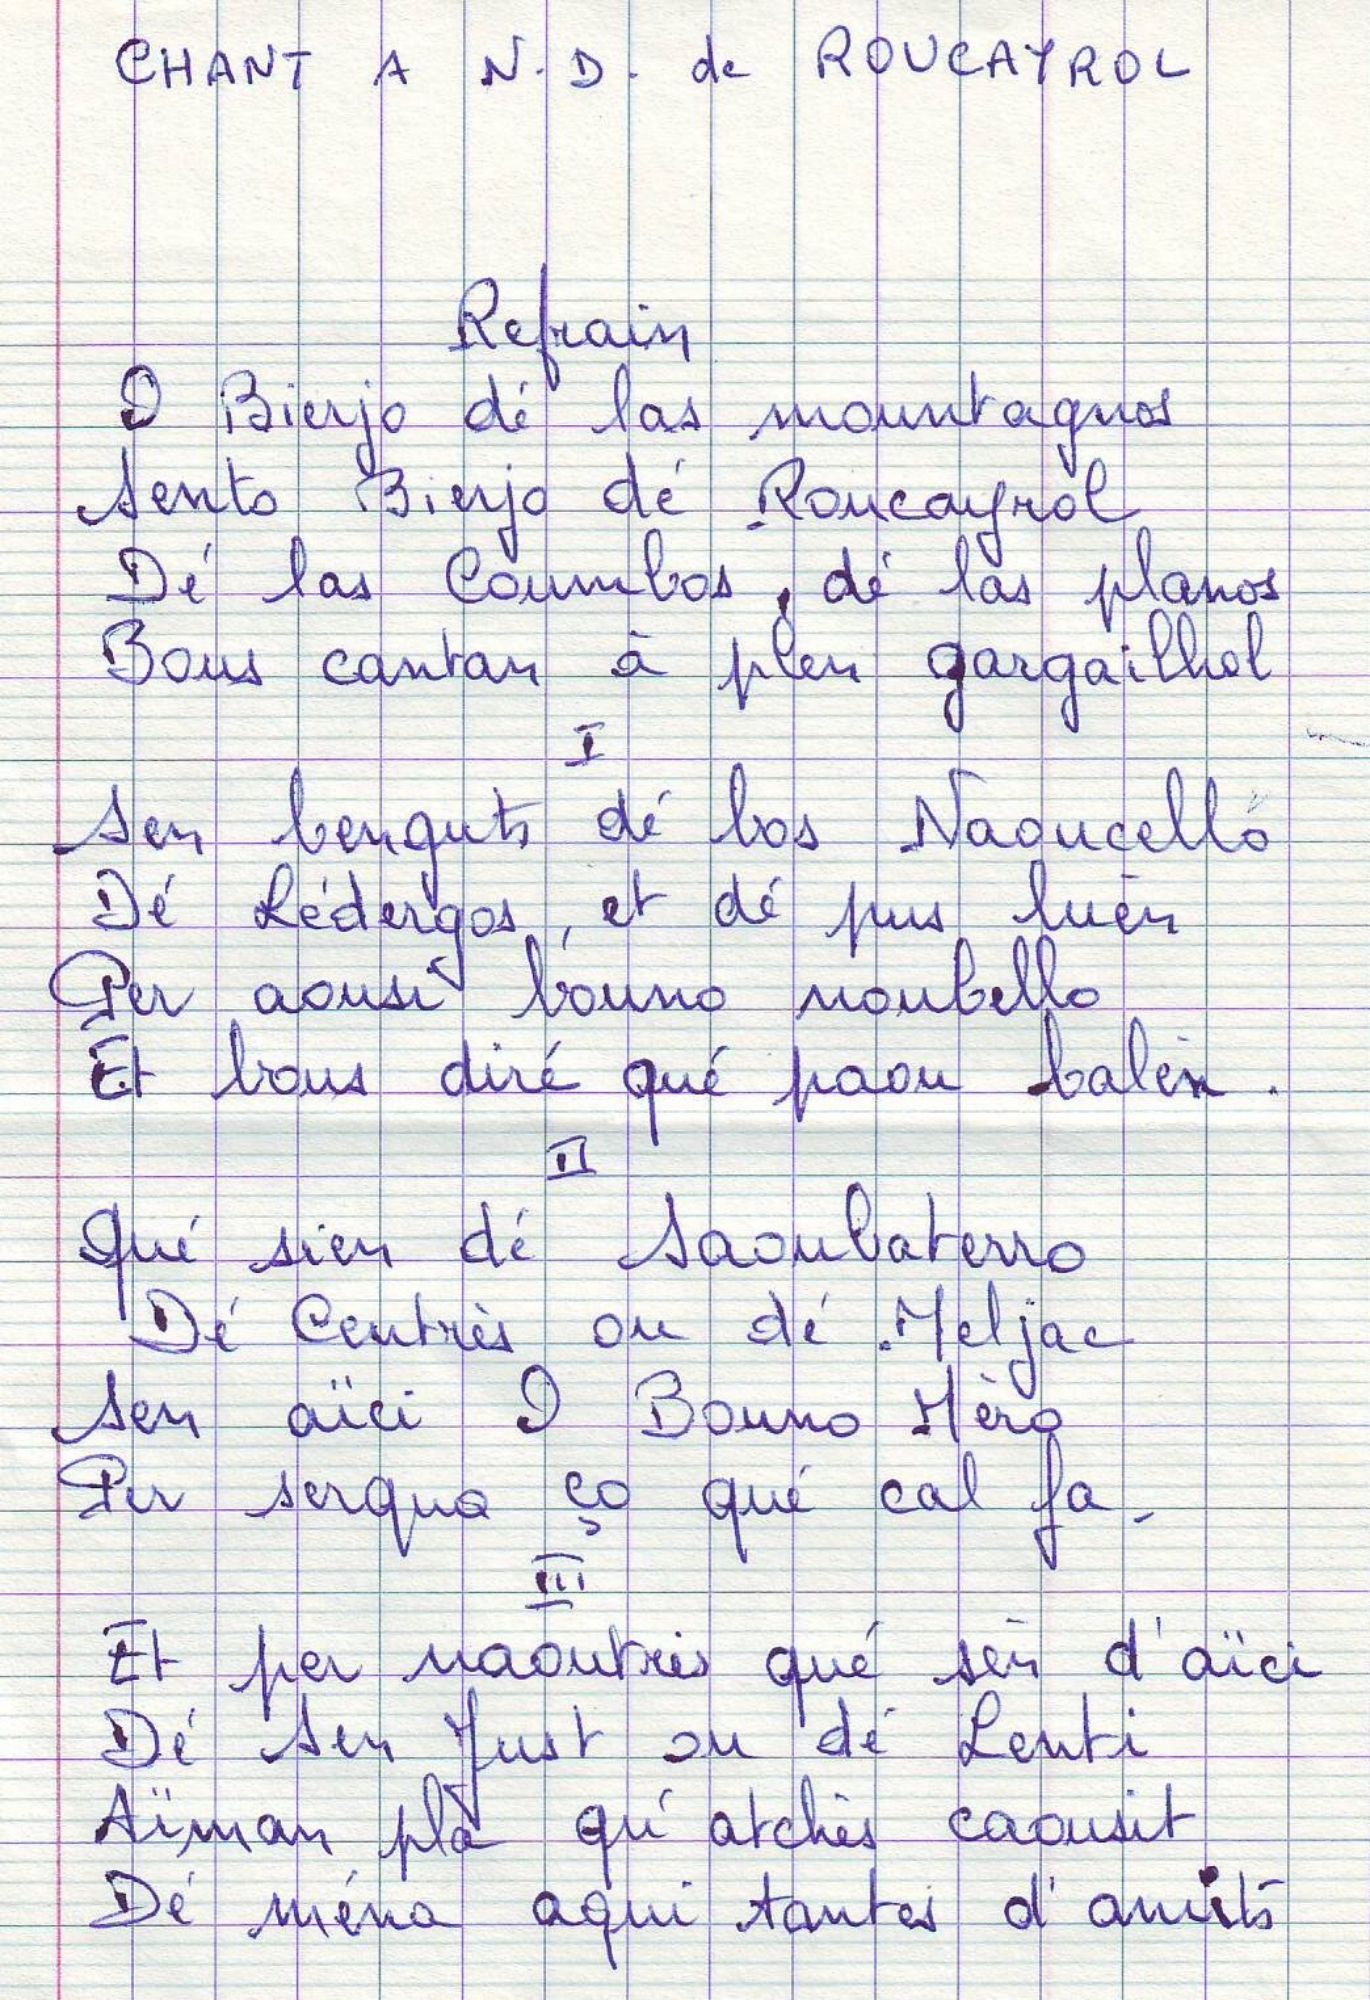 CHANT A N.D. de ROUCAYROL
Refrain
O Bierjo dé las mountagnos
Sento Bierjo dé Roucayrol
Dé las Coumbos, dé las planos
Bous cantan à plen gargailhol
I
Sen benguts dé bos Naoucello
Dé Lédergos, et dé pus luèn
Per aousi bouno noubello
Et bous diré qué paou balèn.
II
Qué sien dé Saoubaterro
Dé Centrès ou dé Meljac
Sen aïci O Bouno Mèro
Per serqua ço qué cal fa.
III
Et per naoutrès qué sèn d'aïci
Dé Sen Just ou dé Lenti
Aïman pla qu'atchès caousit
Dé ména aqui tantes d'amits